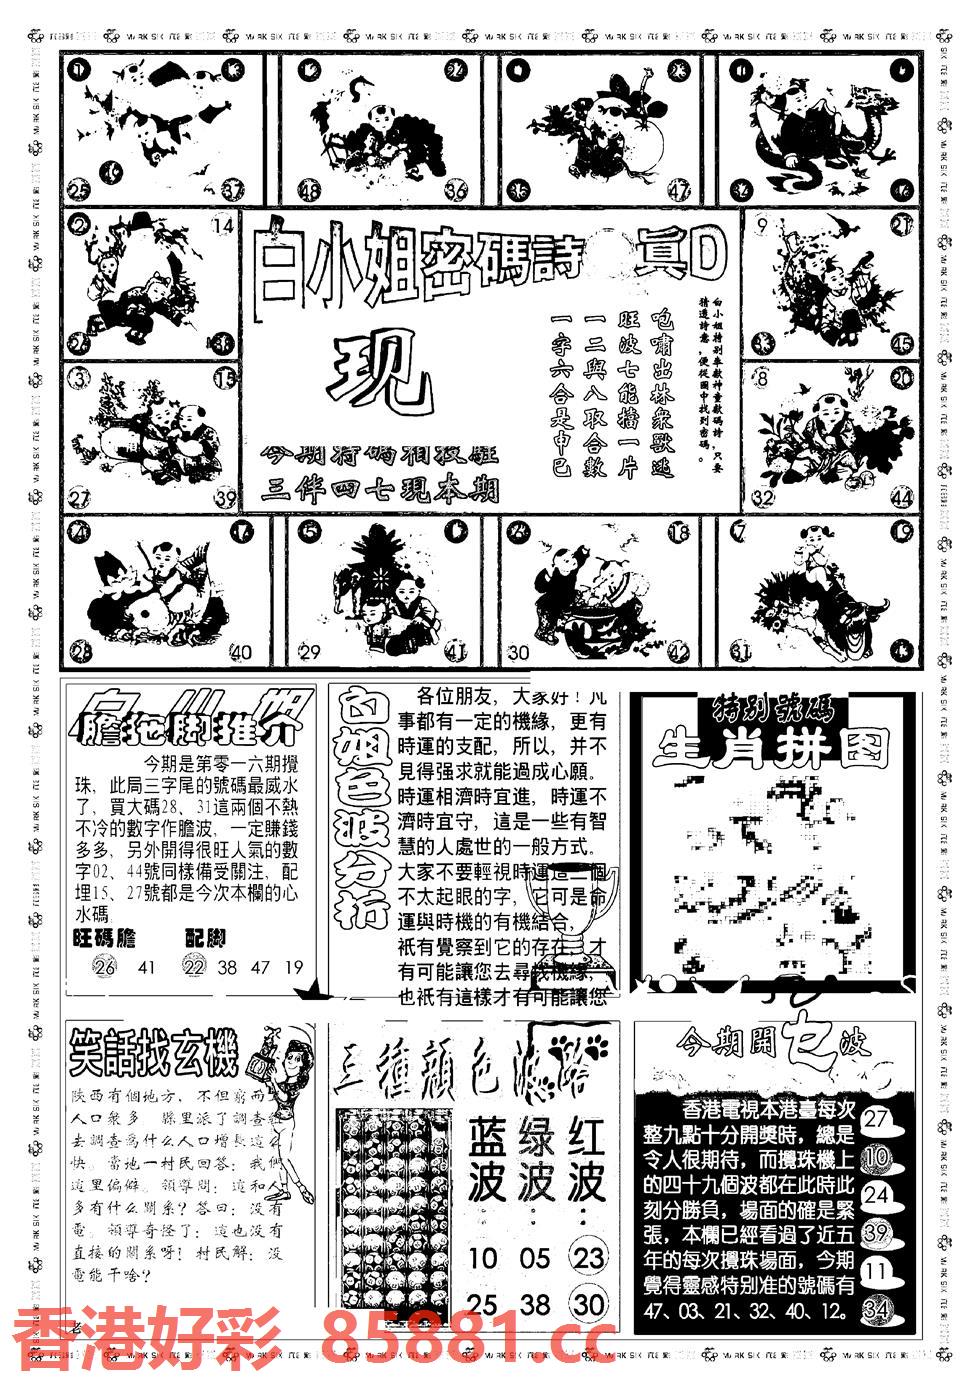 白小姐密碼詩 真D
白小姐特别奉獻神童數碼詩,只要
猜透詩意,便從圖中找到密碼。
咆嘯出林眾獸逃
旺波七能擋一片
一二與八取合數
一字六合是申巳
现
今期特碼相投駐
三伴四七現本期
25 37 48 36 35 47
2 14 9 21
38 45
3 15 8 20
27 39 32 44
4 16 5 6 18 7 19
28 40 29 41 30 42 31
膽拖脚推介
今期是第零一六期攪
珠，此局三字尾的號碼最威水
了，買大碼28、31這兩個不熱
不冷的數字作膽波，一定賺錢
多多，另外開得很旺人氣的數
字02、44號同樣備受關注，配
埋15、27號都是今次本欄的心
水碼
旺碼膽 配脚
26 41 22 38 47 19
白姐色波分析
各位朋友，大家好！凡
事都有一定的機緣，更有
時運的支配，所以，并不
見得强求就能過成心願。
時運相濟時宜進，時運不
濟時宜守，這是一些有智
慧的人處世的一般方式。
大家不要輕視時運這二個
不太起眼的字，它可是命
運與時機的有機結合，
衹有覺察到它的存在，才
有可能讓您去尋找機緣，
也衹有這樣才有可能讓您
特别號碼
生肖拼图
笑話找玄機
陝西有個地方，不但窮而
人口衆多 縣里派了調查組
去調查爲什么人口增長這么
快。當地一村民回答：我們
這里偏僻。領導問：這和人
多有什么關系？答曰：沒有
電。領導奇怪了：這也沒有
直接的關系呀！村民解：沒
電能干啥？
老
三種顔色波路
蓝波： 绿波： 红波：
10 05 23
25 38 30
今期開乜波
香港電視本港臺每次
整九點十分開獎時，總是
令人很期待，而攪珠機上
的四十九個波都在此時此
刻分勝負，場面的確是緊
張，本欄已經看過了近五
年的每次攪珠場面，今期
覺得靈感特别准的號碼有
47、03、21、32、40、12。
27
10
24
39
11
34
香港好彩 85881.cc